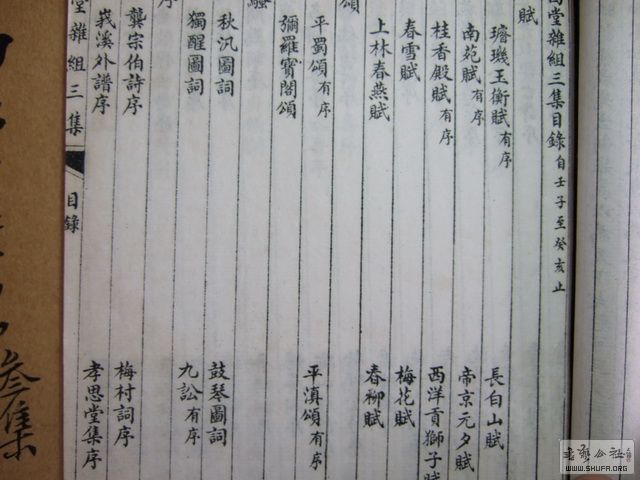 堂雜組三集目錄 自壬子至癸亥止
賦
璿璣玉衡賦 有序 長白山賦
南苑賦 有序 帝京元夕賦
桂香殿賦 有序 西洋貢獅子賦
春雪賦 梅花賦
上林春燕賦 春柳賦
頌
平蜀頌 有序 平滇頌 有序
彌羅寶閣頌
騷
秋汎圖詞 鼓琴圖詞
獨醒圖詞 九訟 有序
序
龔宗伯詩序 梅村詞序
莪溪外譜序 孝思堂集序
堂雜組三集 目錄
叁集
書藝公社
WWW.SHUFA.ORG